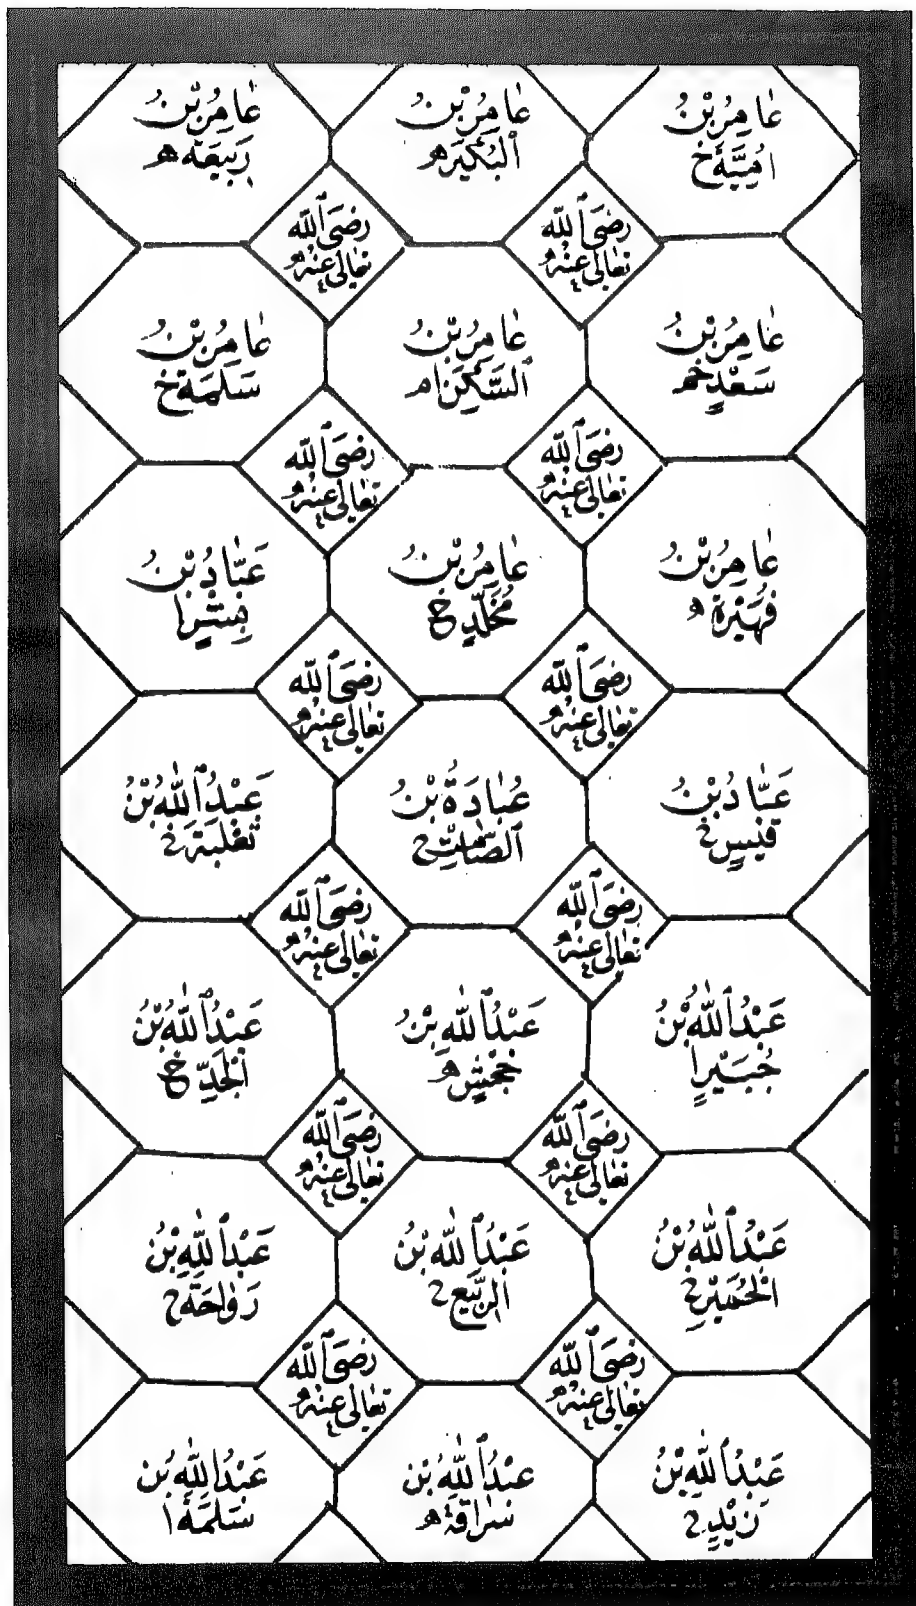 عَامِرُ بْنُ
اُمَيَّةَ خ
عَامِرُ بْنُ
الْبُكَيْرِ ھ
عَامِرُ بْنُ
رَبِيْعَةَ ھ
رَضِىَ اللّٰه
تَعَالٰى عَنْهُ
رَضِىَ اللّٰه
تَعَالٰى عَنْهُ
عَامِرُ بْنُ
سَعْدٍ خم
عَامِرُ بْنُ
السَّكَنِ ام
عَامِرُ بْنُ
سَلَمَةَ خ
رَضِىَ اللّٰه
تَعَالٰى عَنْهُ
رَضِىَ اللّٰه
تَعَالٰى عَنْهُ
عَامِرُ بْنُ
فُهَيْرَةَ ھ
عَامِرُ بْنُ
مُخَلَّدٍ خ
عَبَّادُ بْنُ
بِشْرٍ ا
رَضِىَ اللّٰه
تَعَالٰى عَنْهُ
رَضِىَ اللّٰه
تَعَالٰى عَنْهُ
عَبَّادُ بْنُ
قَيْسٍ خ
عُبَادَةُ بْنُ
الصَّامِتِ خ
عَبْدُ اللّٰهِ بْنُ
ثَعْلَبَةَ خ
رَضِىَ اللّٰه
تَعَالٰى عَنْهُ
رَضِىَ اللّٰه
تَعَالٰى عَنْهُ
عَبْدُ اللّٰهِ بْنُ
جُبَيْرٍ ا
عَبْدُ اللّٰهِ بْنُ
جَحْشٍ ھ
عَبْدُ اللّٰهِ بْنُ
الْجَدِّ خ
رَضِىَ اللّٰه
تَعَالٰى عَنْهُ
رَضِىَ اللّٰه
تَعَالٰى عَنْهُ
عَبْدُ اللّٰهِ بْنُ
الْحُمَيْرِ خ
عَبْدُ اللّٰهِ بْنُ
الرَّبِيْعِ خ
عَبْدُ اللّٰهِ بْنُ
رَوَاحَةَ خ
رَضِىَ اللّٰه
تَعَالٰى عَنْهُ
رَضِىَ اللّٰه
تَعَالٰى عَنْهُ
عَبْدُ اللّٰهِ بْنُ
زَيْدٍ خ
عَبْدُ اللّٰهِ بْنُ
سُرَاقَةَ ھ
عَبْدُ اللّٰهِ بْنُ
سَلَمَةَ ا